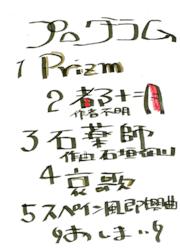 プログラム
1 Prizm
2 都
作者不明
3 石薬師
作曲 石垣
4 哀歌
5 スペイン風即興曲
おしまい